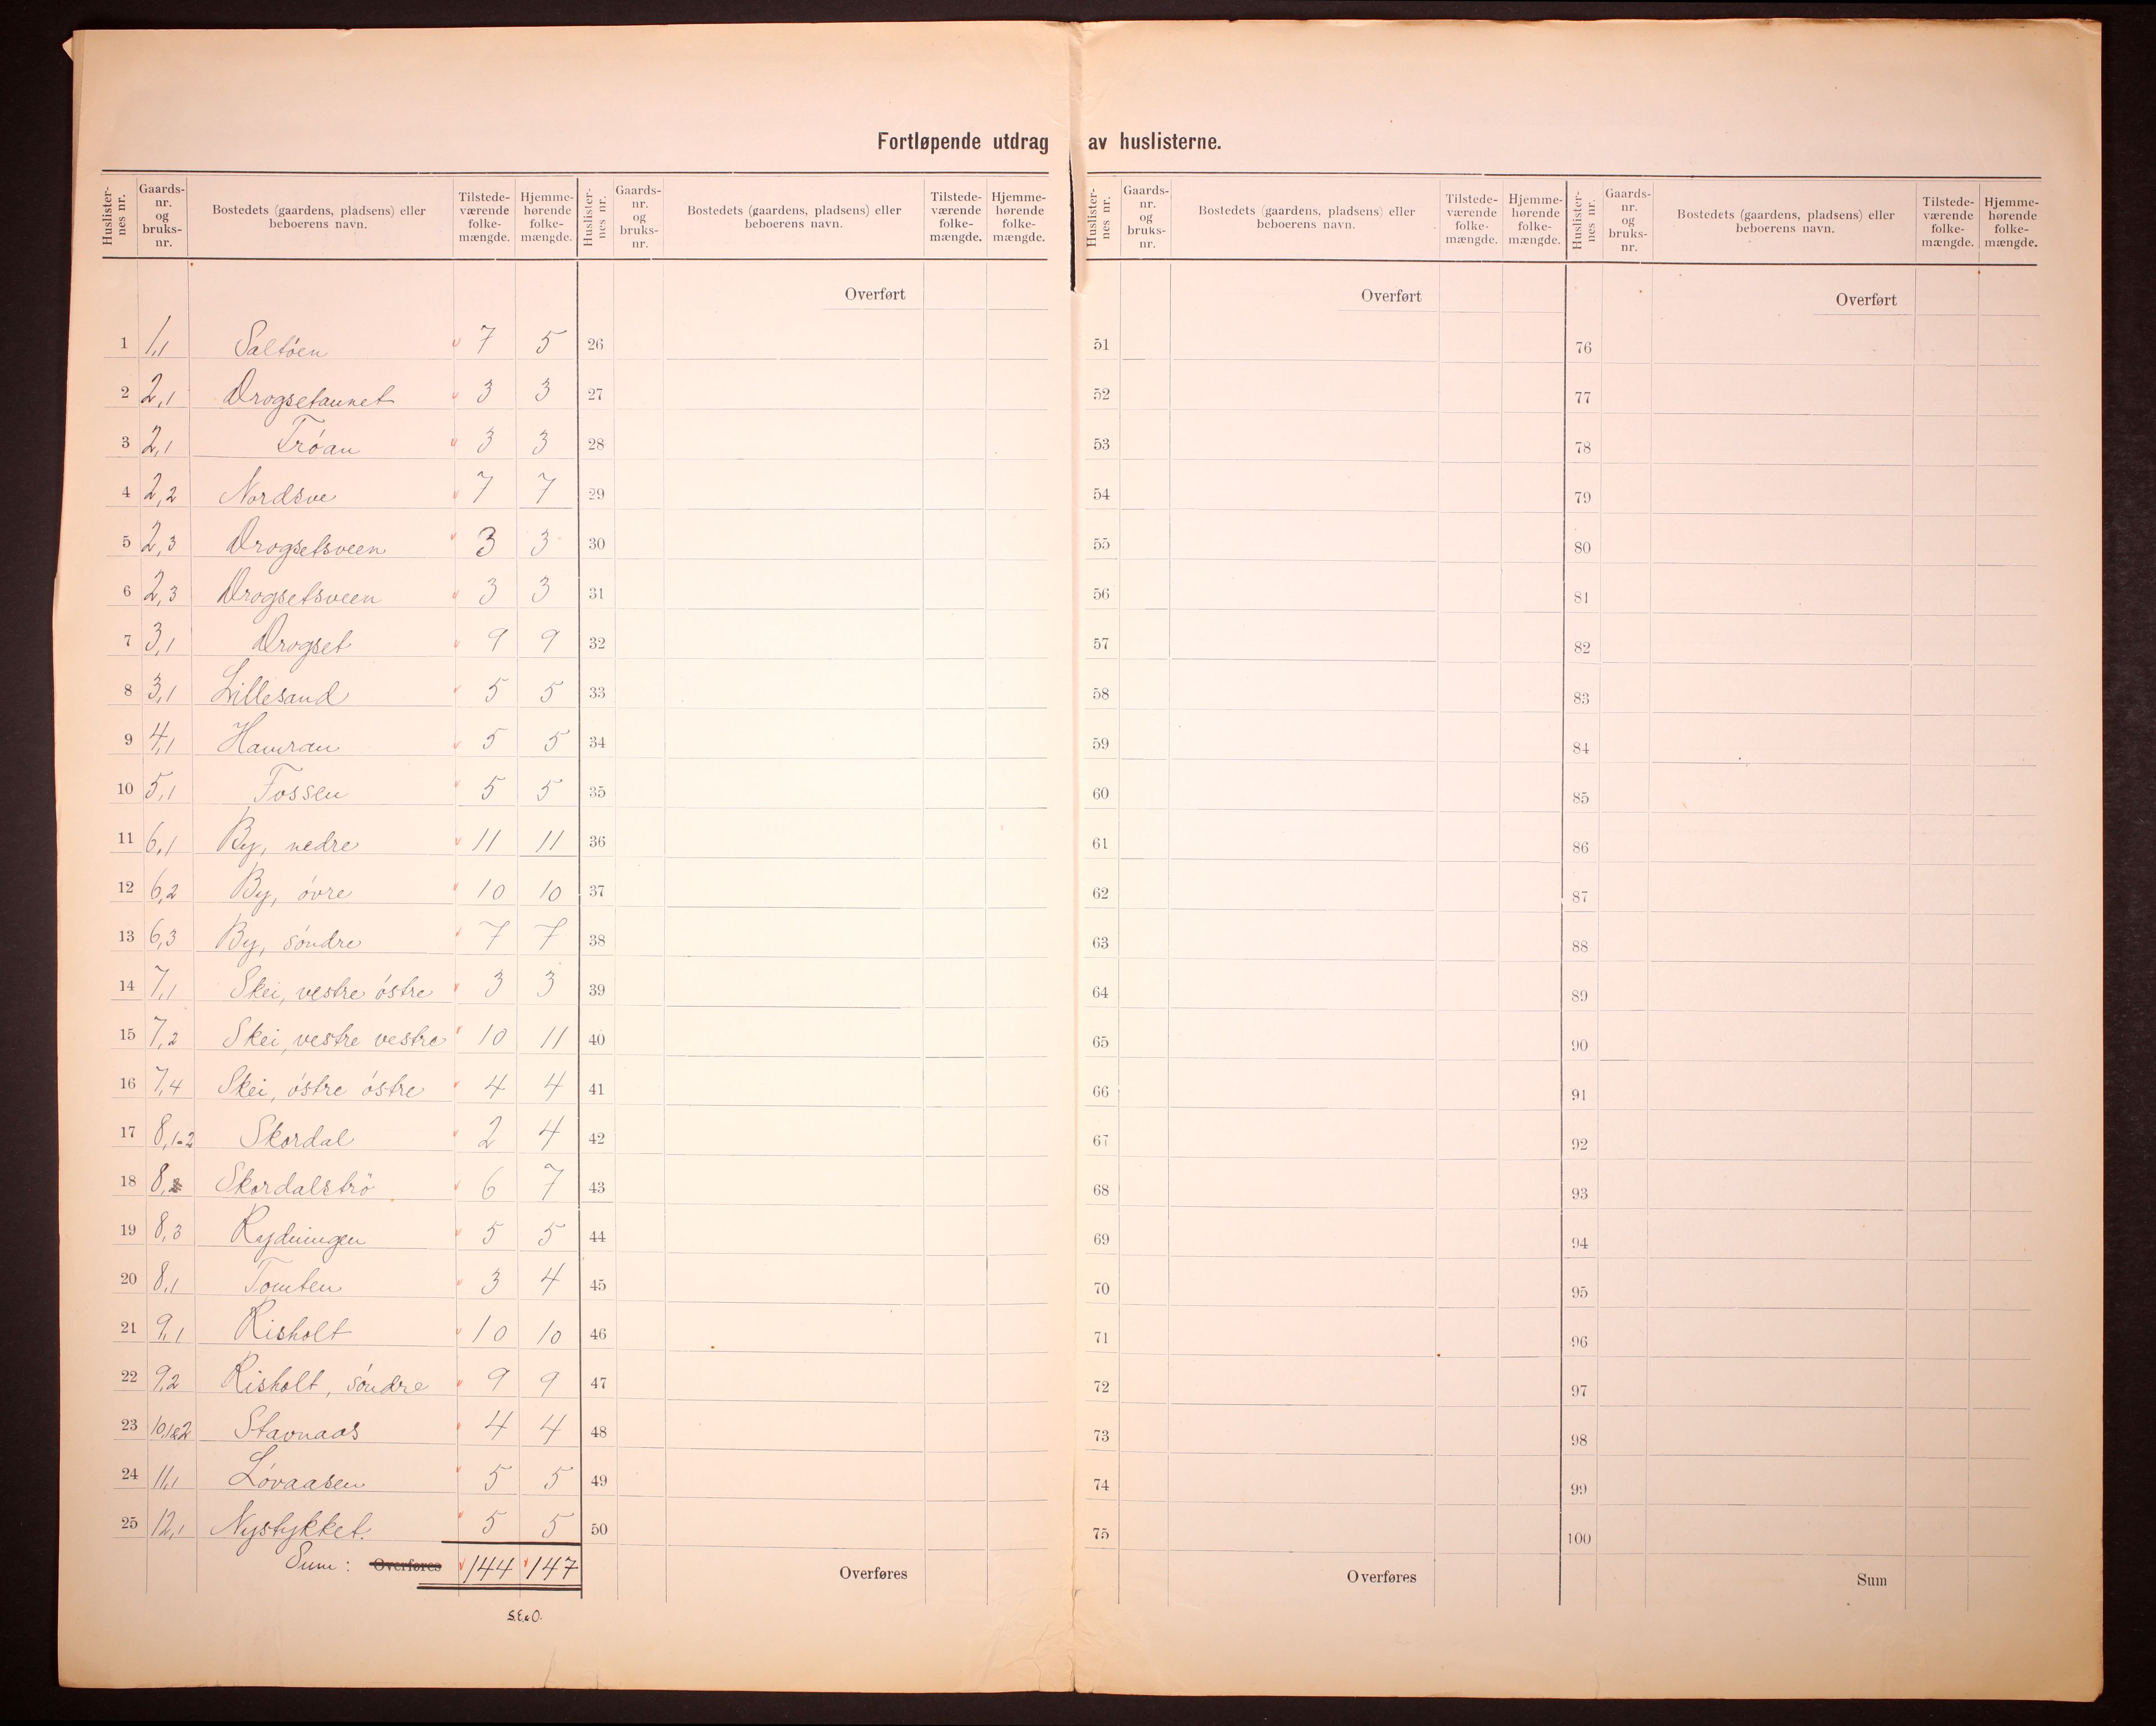 Fortløpende utdrag av huslisterne.
Huslister-nes nr. Gaards-nr. og bruks-nr. Bostedets (gaardens, pladsens) eller beboerens navn. Tilstede-værende folke-mængde. Hjemme-hørende folke-mængde.
1 1,1 Saltöen 7 5
2 2,1 Drogsetaunet 3 3
3 2,1 Tröan 3 3
4 2,2 Nordsve 7 7
5 2,3 Drogsetsveen 3 3
6 2,3 Drogsetsveen 3 3
7 3,1 Drogset 9 9
8 3,1 Lillesand 5 5
9 4,1 Hamran 5 5
10 5,1 Fossen 5 5
11 6,1 By, nedre 11 11
12 6,2 By, óvre 10 10
13 6,3 By, söndre 7 7
14 7,1 Skei, vestre óstre 3 3
15 7,2 Skei, vestre vestre 10 11
16 7,4 Skei, óstre óstre 4 4
17 8,1-2 Skordal 2 4
18 8, Skordalströ 6 7
19 8,3 Rydningen 5 5
20 8,1 Tomten 3 4
21 9,1 Risholt 10 10
22 9,2 Risholt, söndre 9 9
23 10,1&2 Stavnaas 4 4
24 11,1 Lóvaasen 5 5
25 12,1 Nystykket. 5 5
Sum: Overføres 144 147
S.E.&O.
Huslister-nes nr. Gaards-nr. og bruks-nr. Bostedets (gaardens, pladsens) eller beboerens navn. Tilstede-værende folke-mængde. Hjemme-hørende folke-mængde.
Overført
26
27
28
29
30
31
32
33
34
35
36
37
38
39
40
41
42
43
44
45
46
47
48
49
50
Overføres
Huslister-nes nr. Gaards-nr. og bruks-nr. Bostedets (gaardens, pladsens) eller beboerens navn. Tilstede-værende folke-mængde. Hjemme-hørende folke-mængde.
Overført
51
52
53
54
55
56
57
58
59
60
61
62
63
64
65
66
67
68
69
70
71
72
73
74
75
Overføres
Huslister-nes nr. Gaards-nr. og bruks-nr. Bostedets (gaardens, pladsens) eller beboerens navn. Tilstede-værende folke-mængde. Hjemme-hørende folke-mængde.
Overført
76
77
78
79
80
81
82
83
84
85
86
87
88
89
90
91
92
93
94
95
96
97
98
99
100
Sum